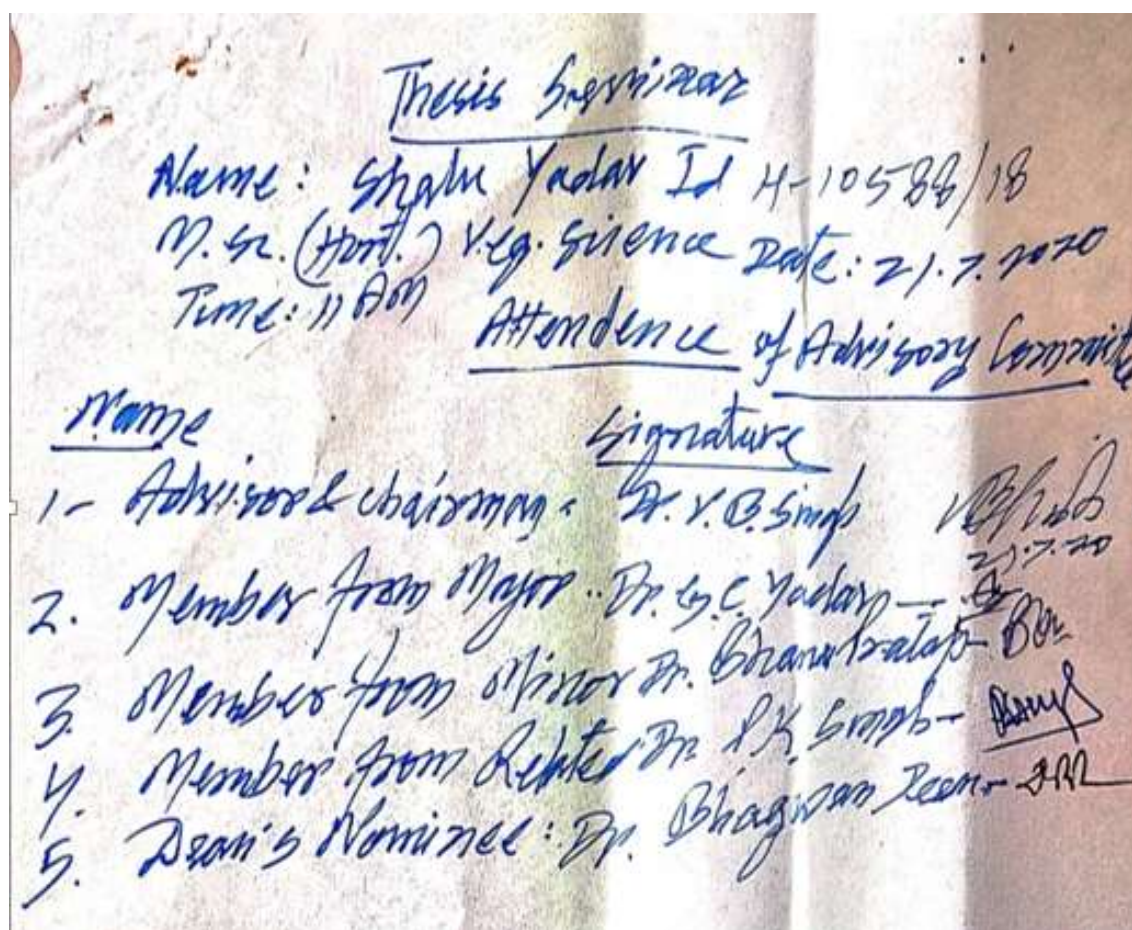 Thesis Seminar
Name: Shalu Yadav Id H-10588/18
M.Sc. (Hort.) Veg. Science Date: 21.7.2020
Time: 11 AM
Attendence of Advisory Committee
Name Signature
1- Advisor & chairman - Dr. V.B. Singh
21.7.20
2. Member from Major .. Dr. G.C. Yadav -
3. Member from Minor Dr. Bhanu Pratap -
4. Member from Related Dr. P.K. Singh -
5. Dean's Nominee: Dr. Bhagwan Deen -